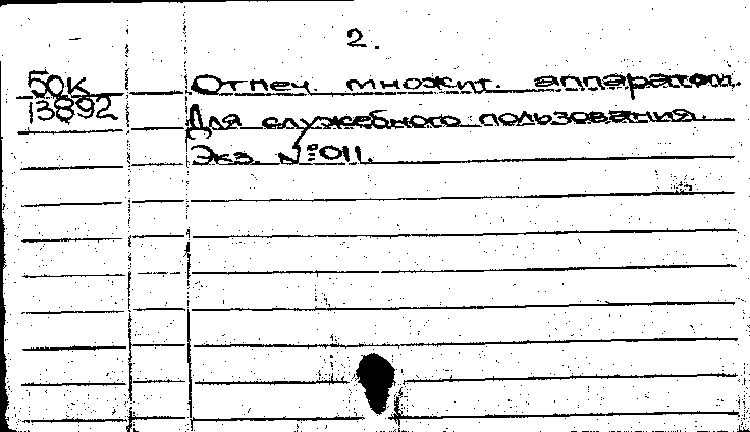 2.
50К Отпеч. множит. аппаратом.
13892 Для служебного пользования.
Экз. №011.